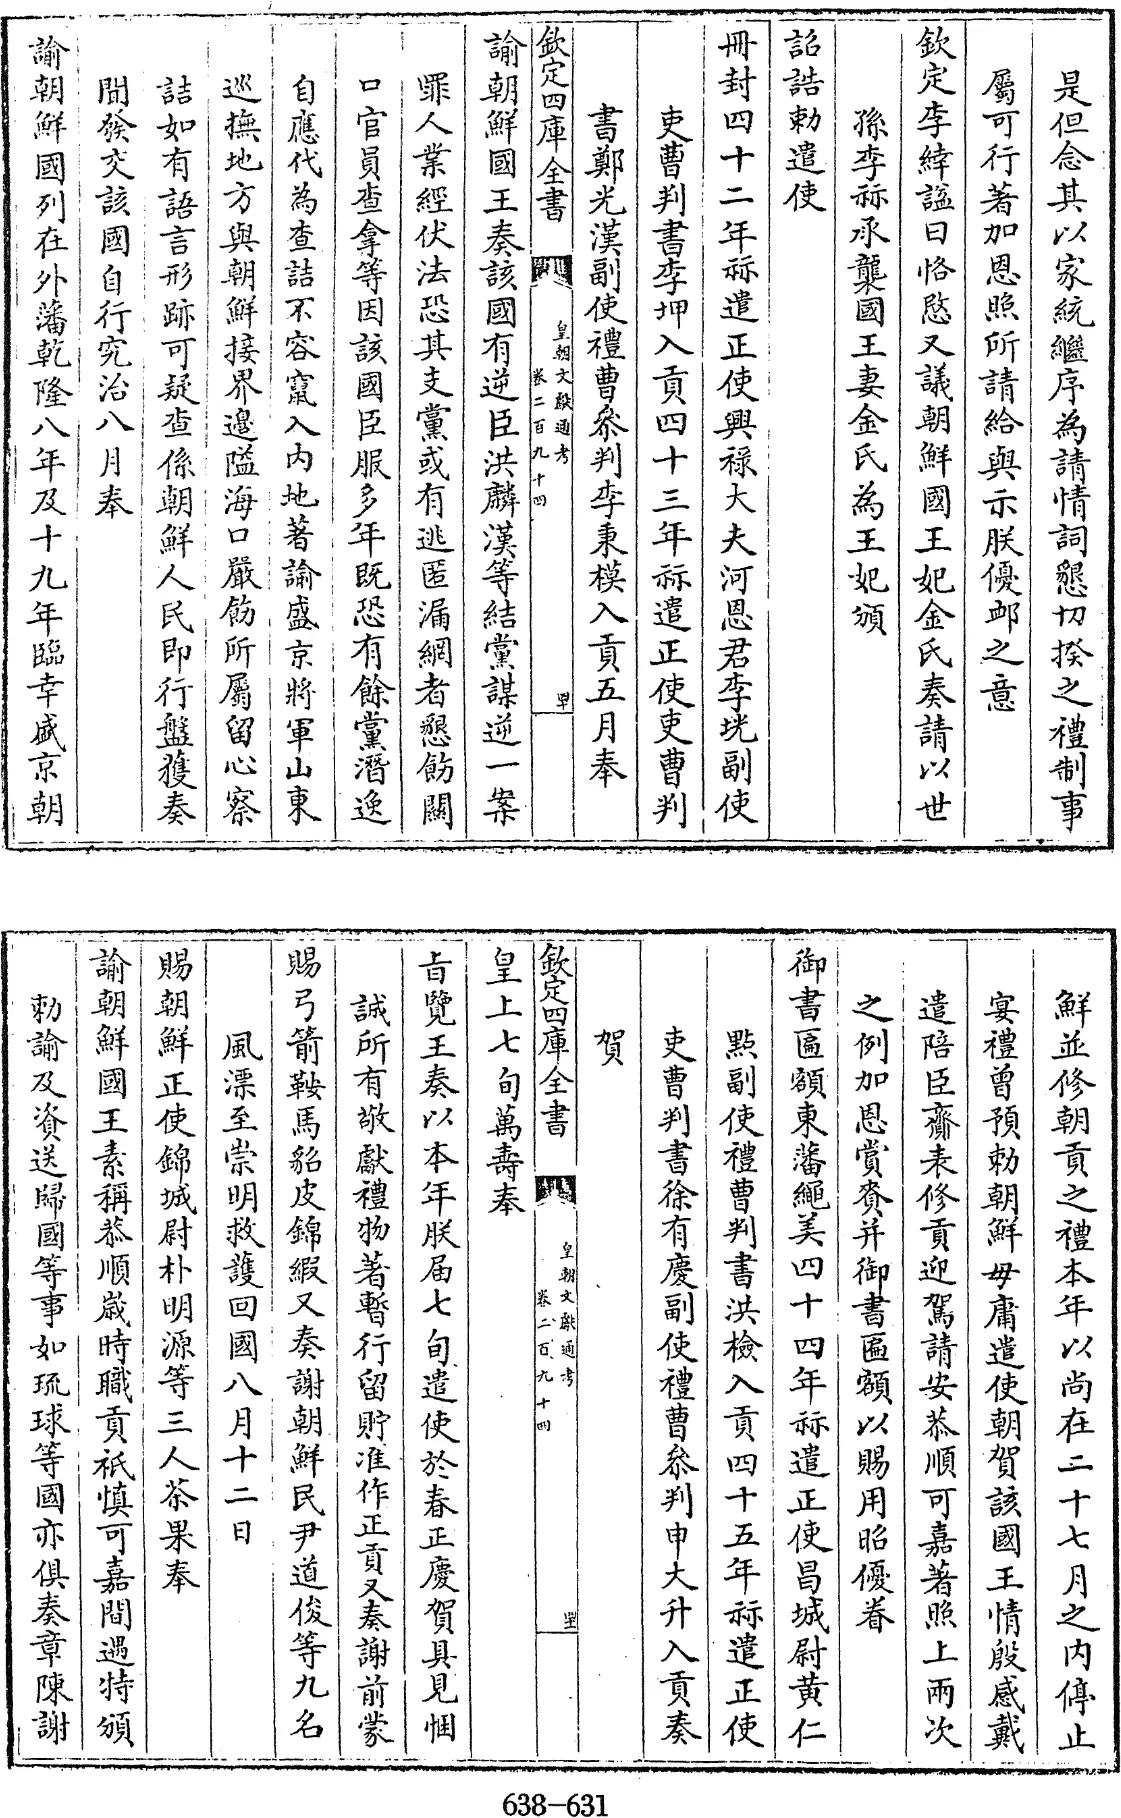 是但念其以家統繼序為請情詞懇切揆之禮制事
屬可行著加恩照所請給與示朕優䘏之意
欽定李緈謚曰恪愍又議朝鮮國王妃金氏奏請以世
孫李祘承襲國王妻金氏為王妃頒
詔誥勅遣使
冊封四十二年祘遣正使興祿大夫河恩君李垙副使
吏曹判書李坤入貢四十三年祘遣正使吏曹判
書鄭光漢副使禮曹叅判李秉模入貢五月奉
欽定四庫全書
皇朝文獻通考
卷二百九十四
諭朝鮮國王奏該國有逆臣洪麟漢等結黨謀逆一案
罪人業經伏法恐其支黨或有逃匿漏網者懇飭關
口官員查拿等因該國臣服多年既恐有餘黨潛逸
自應代為查詰不容竄入內地著諭盛京將軍山東
巡撫地方與朝鮮接界邊隘海口嚴飭所屬留心察
詰如有語言形跡可疑查係朝鮮人民即行盤獲奏
聞發交該國自行究治八月奉
諭朝鮮國列在外藩乾隆八年及十九年臨幸盛京朝
鮮並修朝貢之禮本年以尚在二十七月之內停止
宴禮曾預勅朝鮮毋庸遣使朝賀該國王情殷感戴
遣陪臣齎表修貢迎駕請安恭順可嘉著照上兩次
之例加恩賞賚并御書匾額以賜用昭優眷
御書匾額東藩繩美四十四年祘遣正使昌城尉黃仁
點副使禮曹判書洪檢入貢四十五年祘遣正使
吏曹判書徐有慶副使禮曹叅判申大升入貢奏
賀
欽定四庫全書
皇朝文獻通考
卷二百九十四
皇上七旬萬壽奉
旨覽王奏以本年朕屆七旬遣使於春正慶賀具見悃
誠所有敬獻禮物著暫行留貯准作正貢又奏謝前蒙
賜弓箭鞍馬貂皮錦緞又奏謝朝鮮民尹道俊等九名
風漂至崇明救護回國八月十二日
賜朝鮮正使錦城尉朴明源等三人茶果奉
諭朝鮮國王素稱恭順歲時職貢祇慎可嘉間遇特頒
勅諭及資送歸國等事如琉球等國亦俱奏章陳謝
638-631